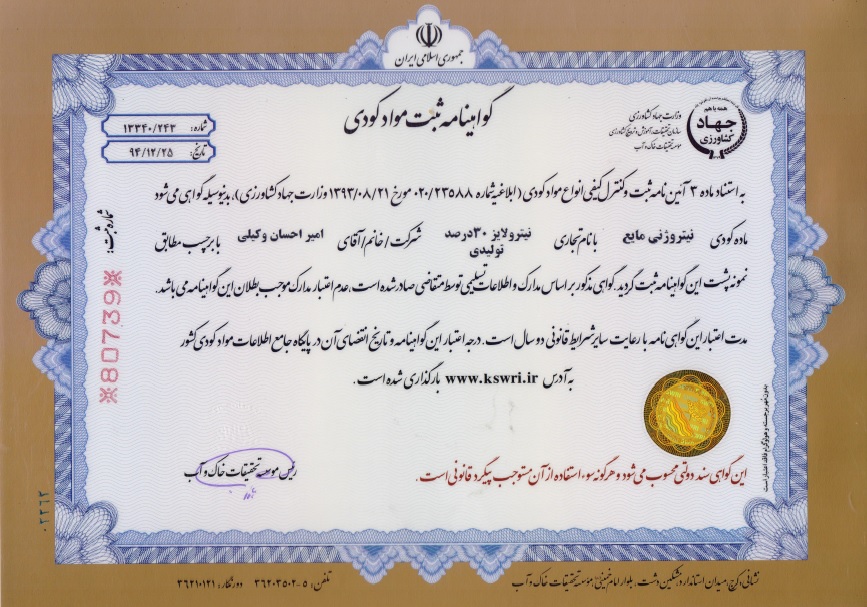 جمهوری اسلامی ایران
گواهینامه ثبت مواد کودی
شماره: ۱۳۳۴۰/۲۴۳
تاریخ: ۹۴/۱۲/۲۵
همه با هم
جهاد
کشاورزی
وزارت جهاد کشاورزی
سازمان تحقیقات، آموزش و ترویج کشاورزی
موسسه تحقیقات خاک و آب
به استناد ماده ۳ آئین نامه ثبت و کنترل کیفی انواع مواد کودی (ابلاغیه شماره ۰۲۰/۲۳۵۸۸ مورخ ۱۳۹۳/۰۸/۲۱ وزارت جهاد کشاورزی)، بدینوسیله گواهی می شود
ماده کودی نیتروژنی مایع با نام تجاری نیترولایز ۳۰درصد تولیدی شرکت/خانم/آقای امیر احسان وکیلی با برچسب مطابق
نمونه پشت این گواهینامه ثبت گردید. گواهی مذکور بر اساس مدارک و اطلاعات تسلیمی توسط متقاضی صادر شده است، عدم اعتبار مدارک موجب بطلان این گواهینامه می باشد.
مدت اعتبار این گواهی نامه با رعایت سایر شرایط قانونی دو سال است. درجه اعتبار این گواهینامه و تاریخ انقضای آن در پایگاه جامع اطلاعات مواد کودی کشور
به آدرس www.kswri.ir بارگذاری شده است.
شماره ثبت:
※80739※
بدون مهر برجسته و هولوگرام فاقد اعتبار است
رئیس موسسه تحقیقات خاک و آب
این گواهی سند دولتی محسوب می شود و هرگونه سوء استفاده از آن مستوجب پیگرد قانونی است.
۰۲۲۶۲
نشانی: کرج، میدان استاندارد، مشکین دشت، بلوار امام خمینی، موسسه تحقیقات خاک و آب
تلفن: ۵-۳۶۲۰۳۵۰۲ دورنگار: ۳۶۲۱۰۱۲۱